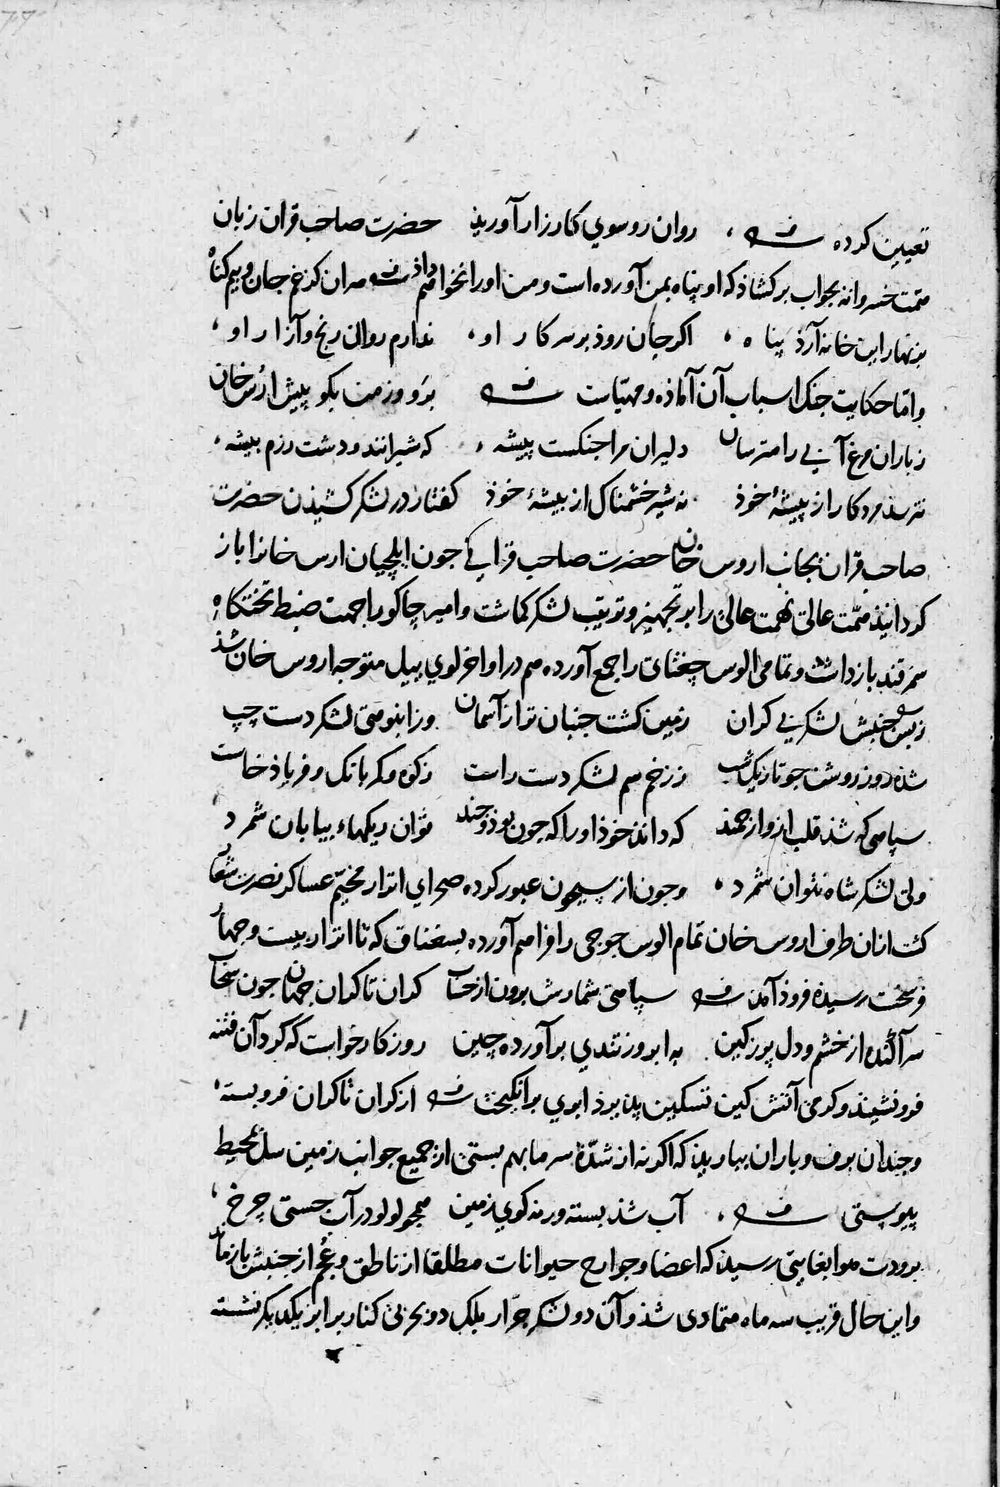 تعیین کرده روان رو سوی کارزار آورید حضرت صاحب قران زبان
همت خسروانه بجواب برکشاذ که او پناه بمن آورده است و من او را نخواهم داذ هر ان کز غم جان و بیم کناه
بزنهار این خانه آرذ پناه اکر جان روذ بر سر کار او ندارم روا رنج و آزار او
و اما حکایت جنک اسباب آن آماذه و مهیاست برو و ز من بکو پیش ارس خان
ز باران مرغ آبی را مترسان دلیران مرا جنکست پیشه که شیرانند و دشت رزم بیشه
نترسذ مرد کار از پیشهٔ خوذ نه شیر خشمناک از بیشهٔ خوذ کفتار در لشکر کشیذن حضرت
صاحب قران بجانب اروس خان حضرت صاحب قرانی جون ایلچیان ارس خانرا باز
کردانیذ همت عالی نهمت عالی را بر تجهیز و ترتیب لشکر کماشت و امیر چاکو را جهت ضبط تختکاه
سمرقند باز داشت و تمامی الوس جغتای را جمع آورده هم در اواخر لوی ییل متوجه اروس خان شذ
ز بس جنبش لشکر بی کران زمین کشت جنبان تر از آسمان وز انبوهی لشکر دست چپ
شذه روز روشن جو تاریک شب ز زخم سم لشکر دست راست ز کوه و کمر بانک و فریاذ خاست
سپاهی که شذ قلب ازو ارجمند که داند خوذ او را که چون بوذ و چند توان ریکهاء بیابان شمرد
ولی لشکر شاه نتوان شمرد و جون از سیحون عبور کرده صحرای اترار مخیّم عساکر نصرت شعار
کشت ازان طرف اروس خان تمام الوس جوجی را فراهم آورده بسغناق که تا اترار بیست و چهار
فرسخست رسیذه فروذ آمذ سپاهی شمارش برون از حساب کران تا کران جهان جون سحاب
سر آکنده از خشم و دل پر ز کین به ابرو ز تندی برآورده چین روزکار خواست که کرد آن فتنه
فرو نشیند و کرمی آتش کین تسکین پذیرذ ابری برانکیخت از کران تا کران فرو بسته
و جندان برف و باران بباریذ که اکر نه از شدّة سرما بهم بستی از جمیع جوانب زمین سل محیط
پیوستی آب شذ بسته ورنه کوی زمین همچو لولو در آب جستی چرخ
برودت هوا بغایتی رسیذ که اعضا و جوارح حیوانات مطلقا از ناطق و عجم از جنبش باز ماند
و این حال قریب سه ماه متمادی شذ و آن دو لشکر جرّار بلک دو بحر بی کنار برابر یکدیکر نشسته